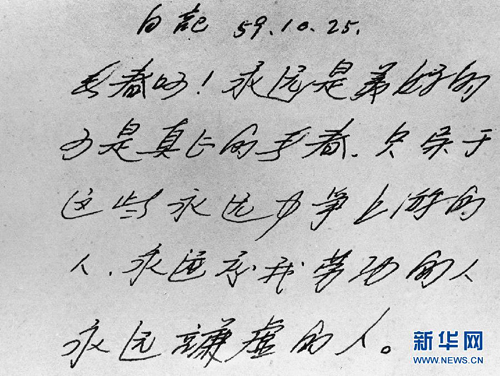 日記 59.10.25.
青春啊！永远是美好的
可是真正的青春、只属于
这些永远力争上游的
人、永远忘我劳动的人
永远謙虚的人。
新华网
WWW.NEWS.CN